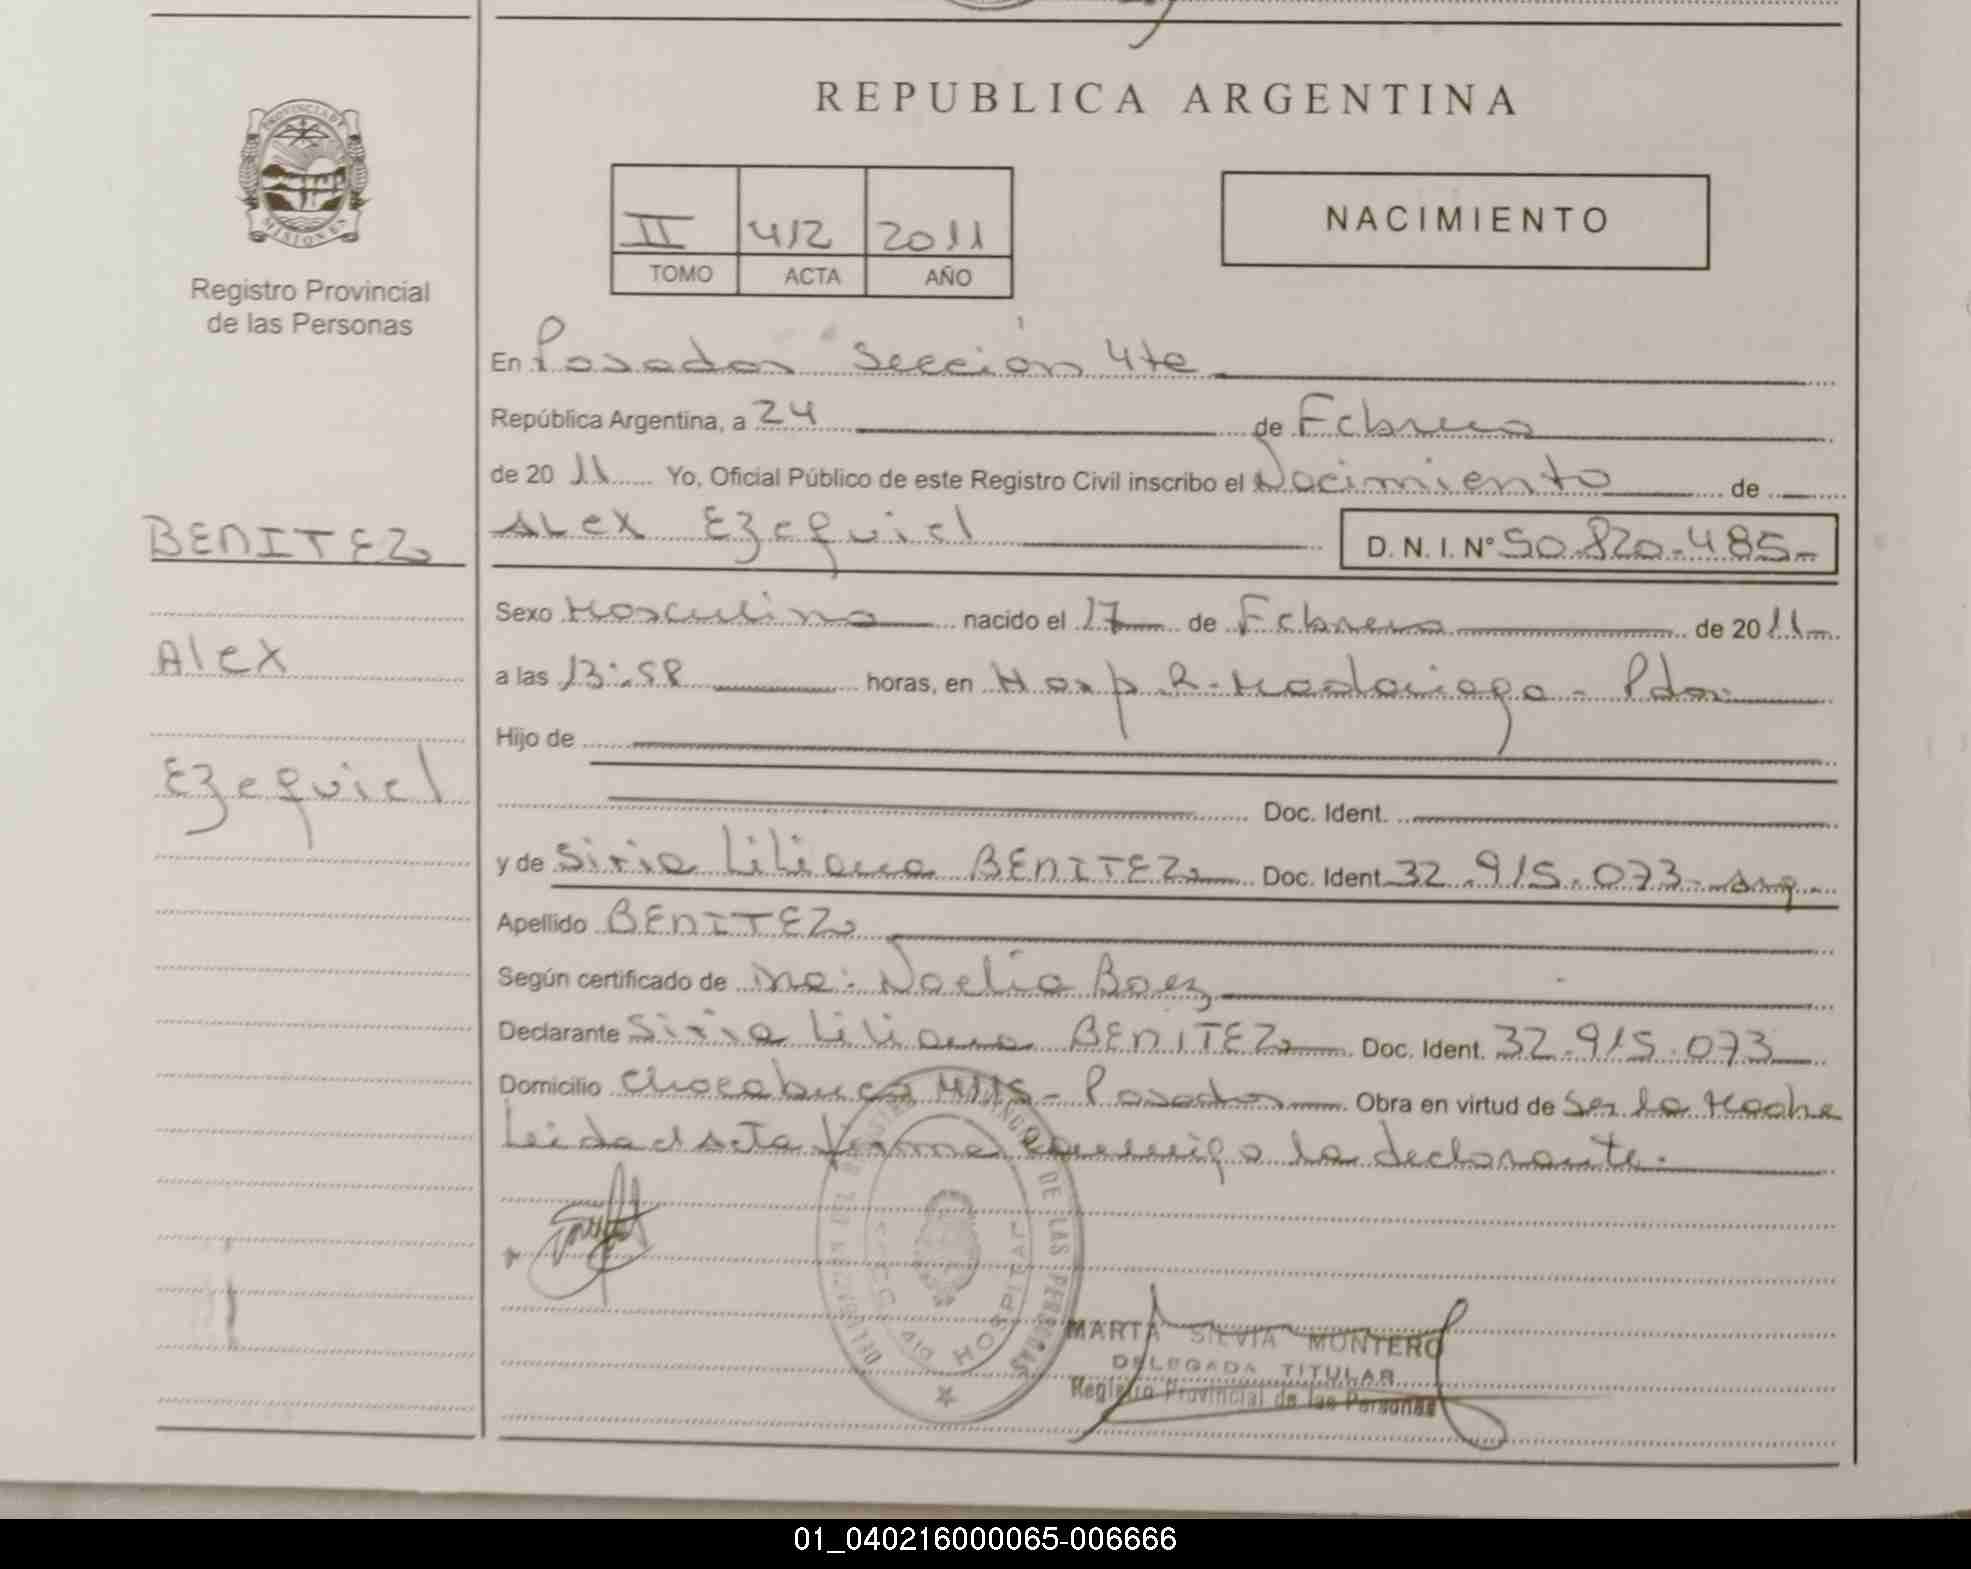 REPUBLICA ARGENTINA
PROVINCIA DE MISIONES
Registro Provincial
de las Personas
II 412 2011
TOMO ACTA AÑO
NACIMIENTO
En Posadas Sección 4te
República Argentina, a 24 de Febrero
de 2011 Yo, Oficial Público de este Registro Civil inscribo el Nacimiento de
BENITEZ
Alex
Ezequiel
ALEX Ezequiel D. N. I. Nº 50.820.485-
Sexo Masculino nacido el 17 de Febrero de 2011
a las 13:58 horas, en Hosp R. Madariaga - Pdas.
Hijo de
Doc. Ident.
y de Siria Liliana BENITEZ Doc. Ident. 32.915.073- Arg.
Apellido BENITEZ
Según certificado de Noelia Baez
Declarante Siria Liliana BENITEZ Doc. Ident. 32.915.073
Domicilio Chacabuco - Posadas Obra en virtud de Ser la Madre
Leida el Acta Firma conmigo la declarante.
DE LAS PERSONAS
HOSPITAL
MARTA SILVIA MONTERO
DELEGADA TITULAR
Registro Provincial de las Personas
01_040216000065-006666